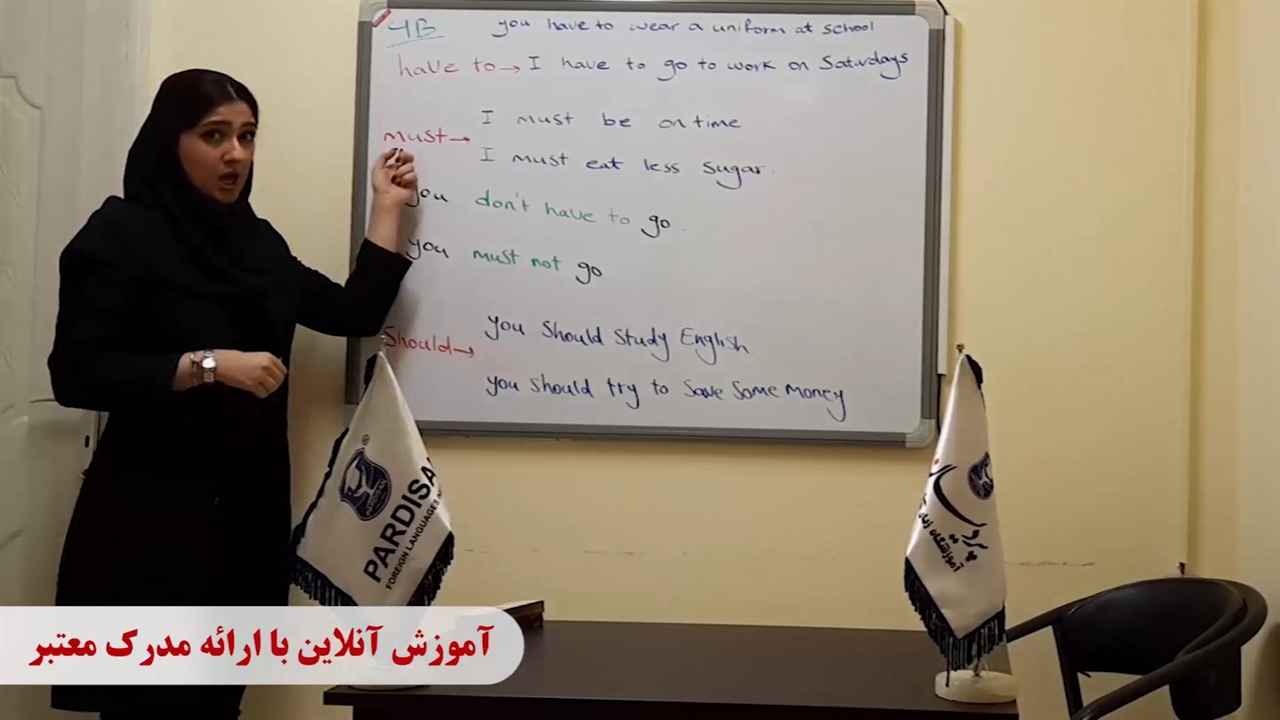 4B
you have to wear a uniform at school
have to → I have to go to work on Saturdays
I must be on time
must →
I must eat less sugar.
you don't have to go.
you must not go
you should study English
Should →
you should try to save some money
PARDISAN
FOREIGN LANGUAGES
آموزشگاه زبان
آموزش آنلاین با ارائه مدرک معتبر